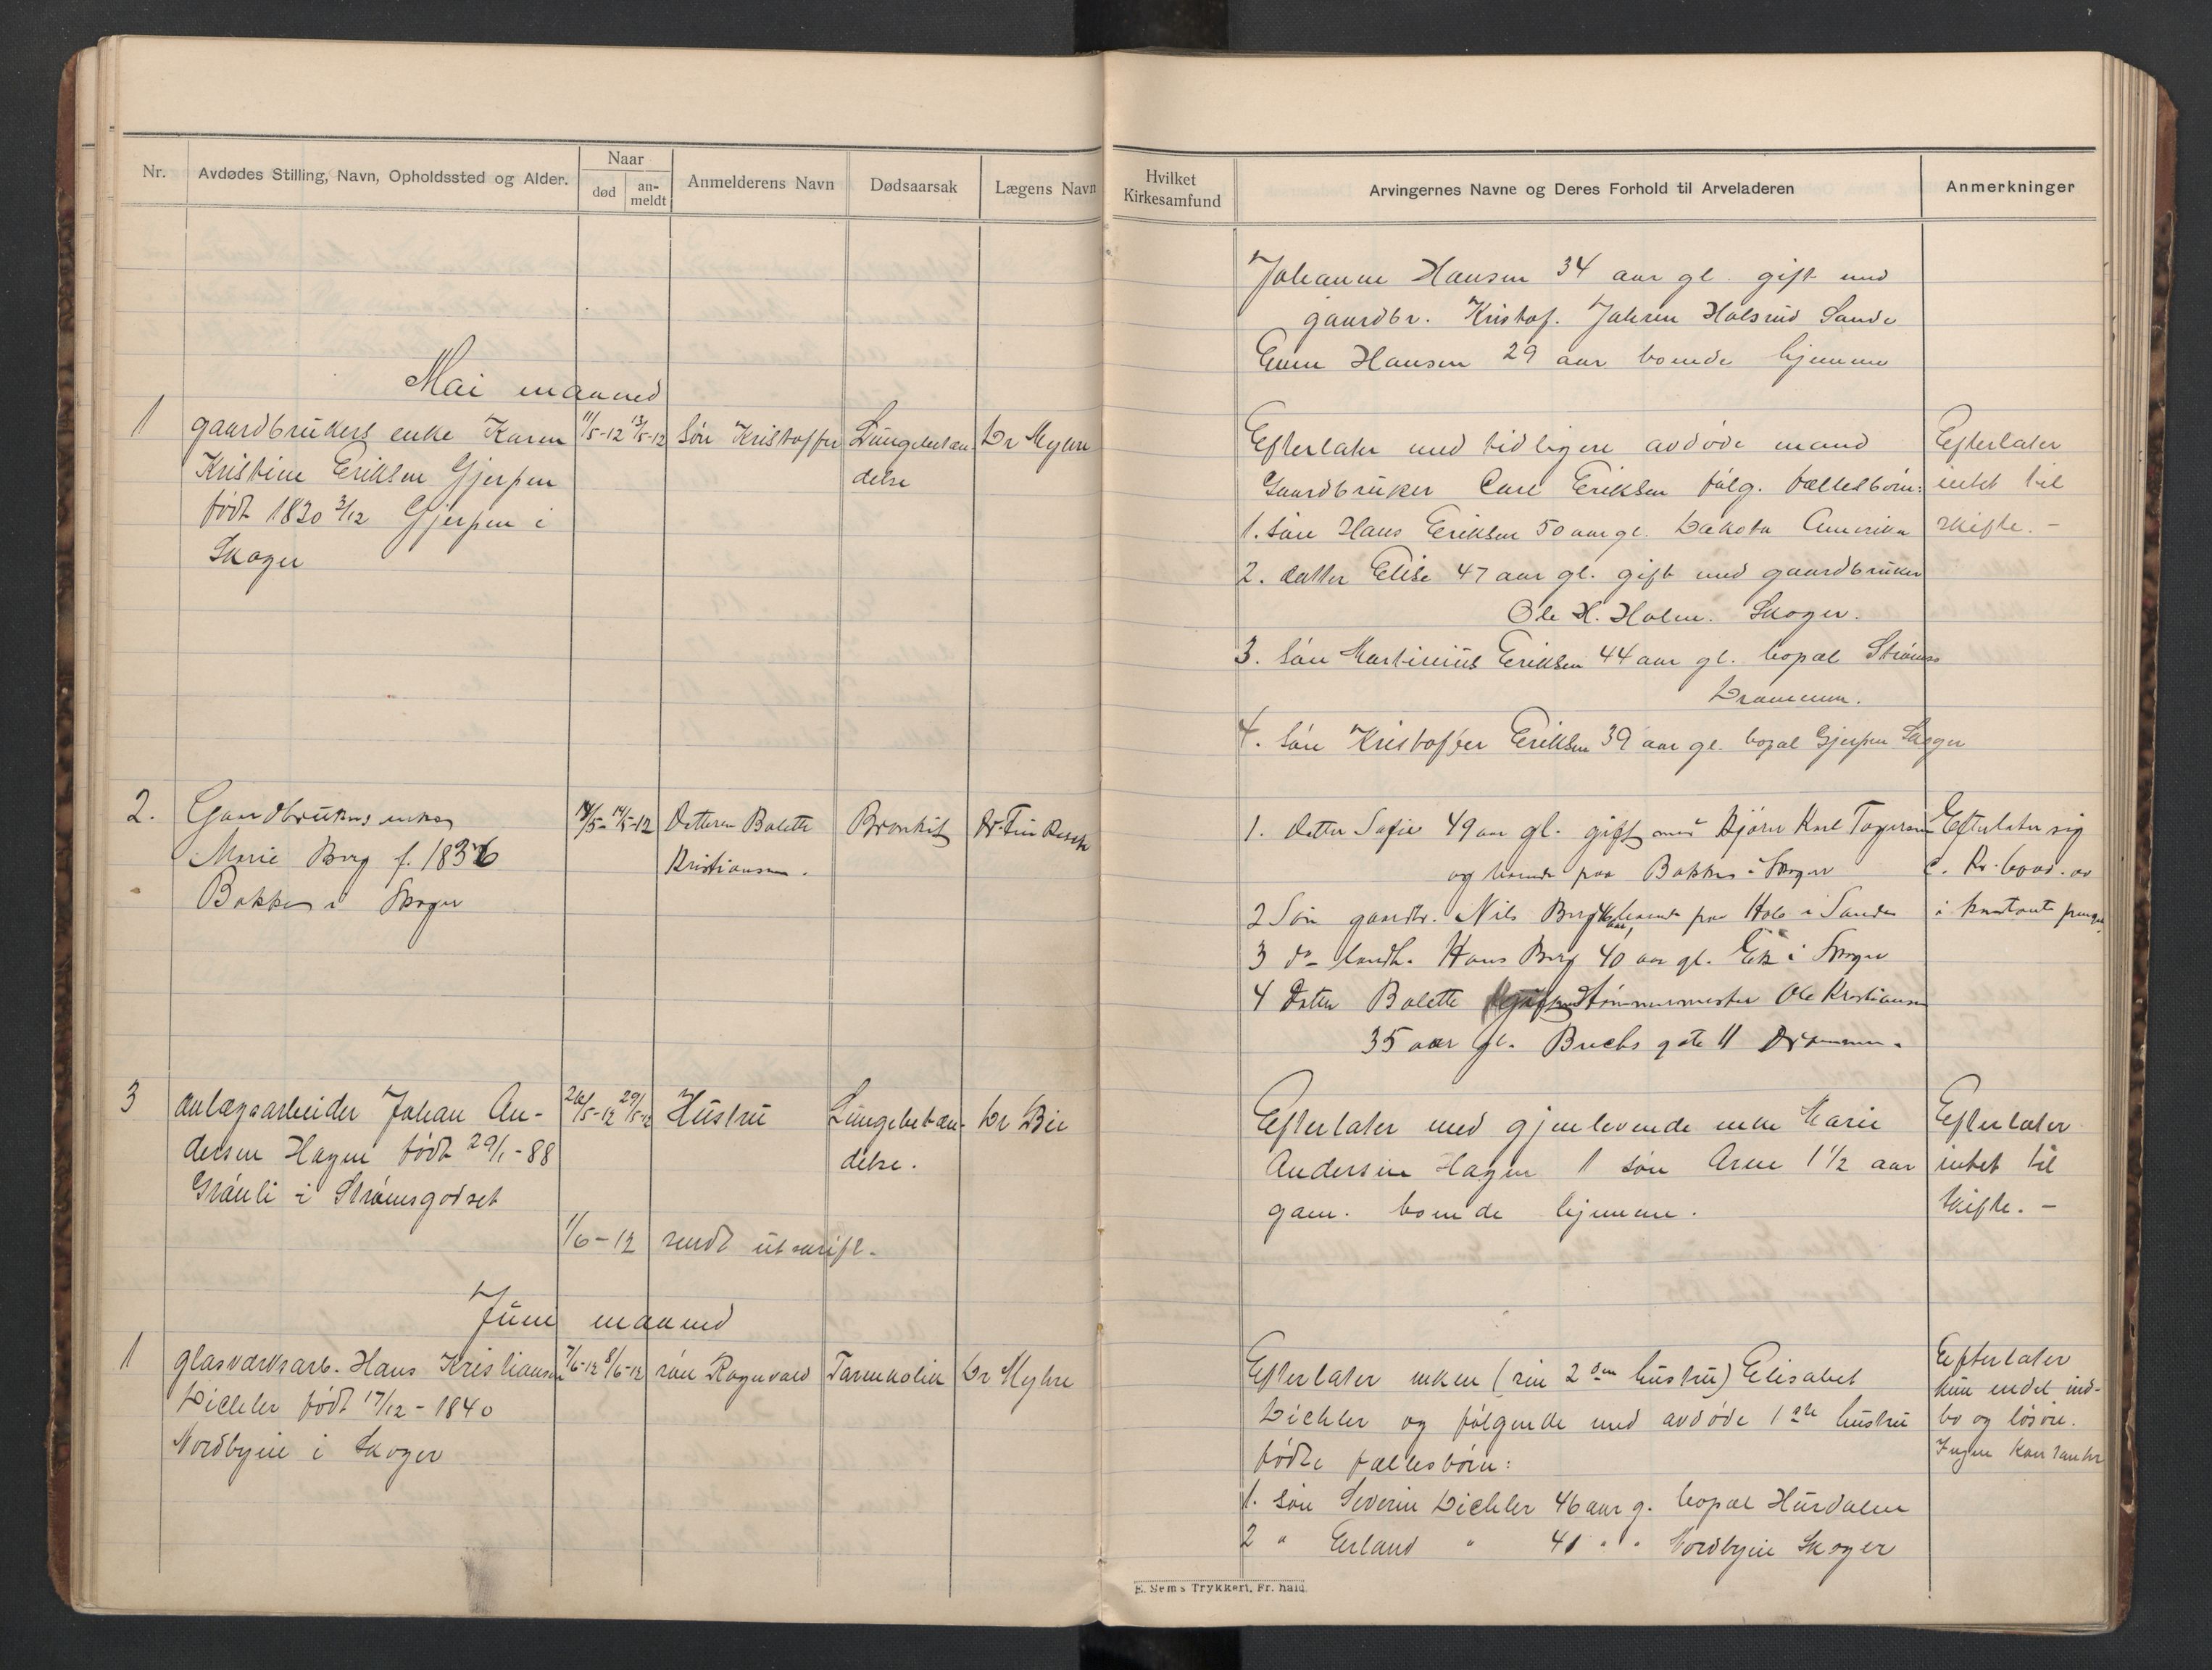 Nr.
Avdødes Stilling, Navn, Opholdssted og Alder.
Naar
død
an-
meldt
Anmelderens Navn
Dødsaarsak
Lægens Navn
Mai maaned
1
gaardbrukers enke Karen
Kristine Eriksen Gjerpen
født 1830 3/12 Gjerpen i
Skoger
11/5-12
13/5-12
søn Kristoffer
Lungebetæn-
delse
Dr Myhre
2.
Gaardbrukers enke
Marie Berg f. 1836
Bakke i Skoger
14/5-12
Datteren Balette
Kristiansen.
Bronkit
3
anlægsarbeider Johan An-
dersen Hagen født 29/1-88
Grånli i Strømsgodset
26/5-12
29/5-12
Hustru
Lungebetæn-
delse.
Dr Bie
1/6-12 sendt utskrift.
Juni maaned
1
glasværksarb. Hans Kristiansen
Dichler født 17/12-1840
Nordbyen i Skoger
7/6-12
8/6-12
søn Ragnvald
Tarmkolik
Dr Myhre
Hvilket
Kirkesamfund
Arvingernes Navne og Deres Forhold til Arveladeren
Anmerkninger
Johanne Hansen 34 aar gl. gift med
gaardbr. Kristof. Johsen Holsrud Sande
Hansen 29 aar boende hjemme
Efterlater med tidligere avdøde mand
Gaardbruker Carl Eriksen følg. fællesbørn:
1. søn Hans Eriksen 50 aar gl. Dakota Amerika
2. datter Elise 47 aar gl. gift med gaardbruker
Ole H. Holm. Skoger.
3. søn Martinius Eriksen 44 aar gl. bopæl Strømsø
Drammen.
4. søn Kristoffer Eriksen 39 aar gl. bopæl Gjerpen Skoger
Efterlater
intet til
skifte. –
1. Datter Sofie 49 aar gl. gift med Bjørn Karl
og boende paa Bakke i Skoger
2 Søn gaardbr. Nils Berg boende paa Hols i Sande
3 do landh. Hans Berg 40 aar gl. Ek i Skoger
4 Datter Balette gift med tømmermester Ole Kristiansen
35 aar gl. Buchs gate 11 Drammen.
Efterlater sig
i kontante penger.
Efterlater med gjenlevende enke Marie
Andersen Hagen 1 søn Arne 1 1/2 aar
gam. boende hjemme.
Efterlater
intet til
skifte. –
Efterlater enken (sin 2den hustru) Elisabet
Dichler og følgende med avdøde 1ste hustru
fødte fællesbørn:
1. søn Severin Dichler 46 aar g. bopæl Hurdalen
2 " Erland " 41 " " Nordbyen Skoger
Efterlater
kun endel ind-
bo og løsøre.
Ingen kontanter
E. Sems Trykkeri, Fr.hald